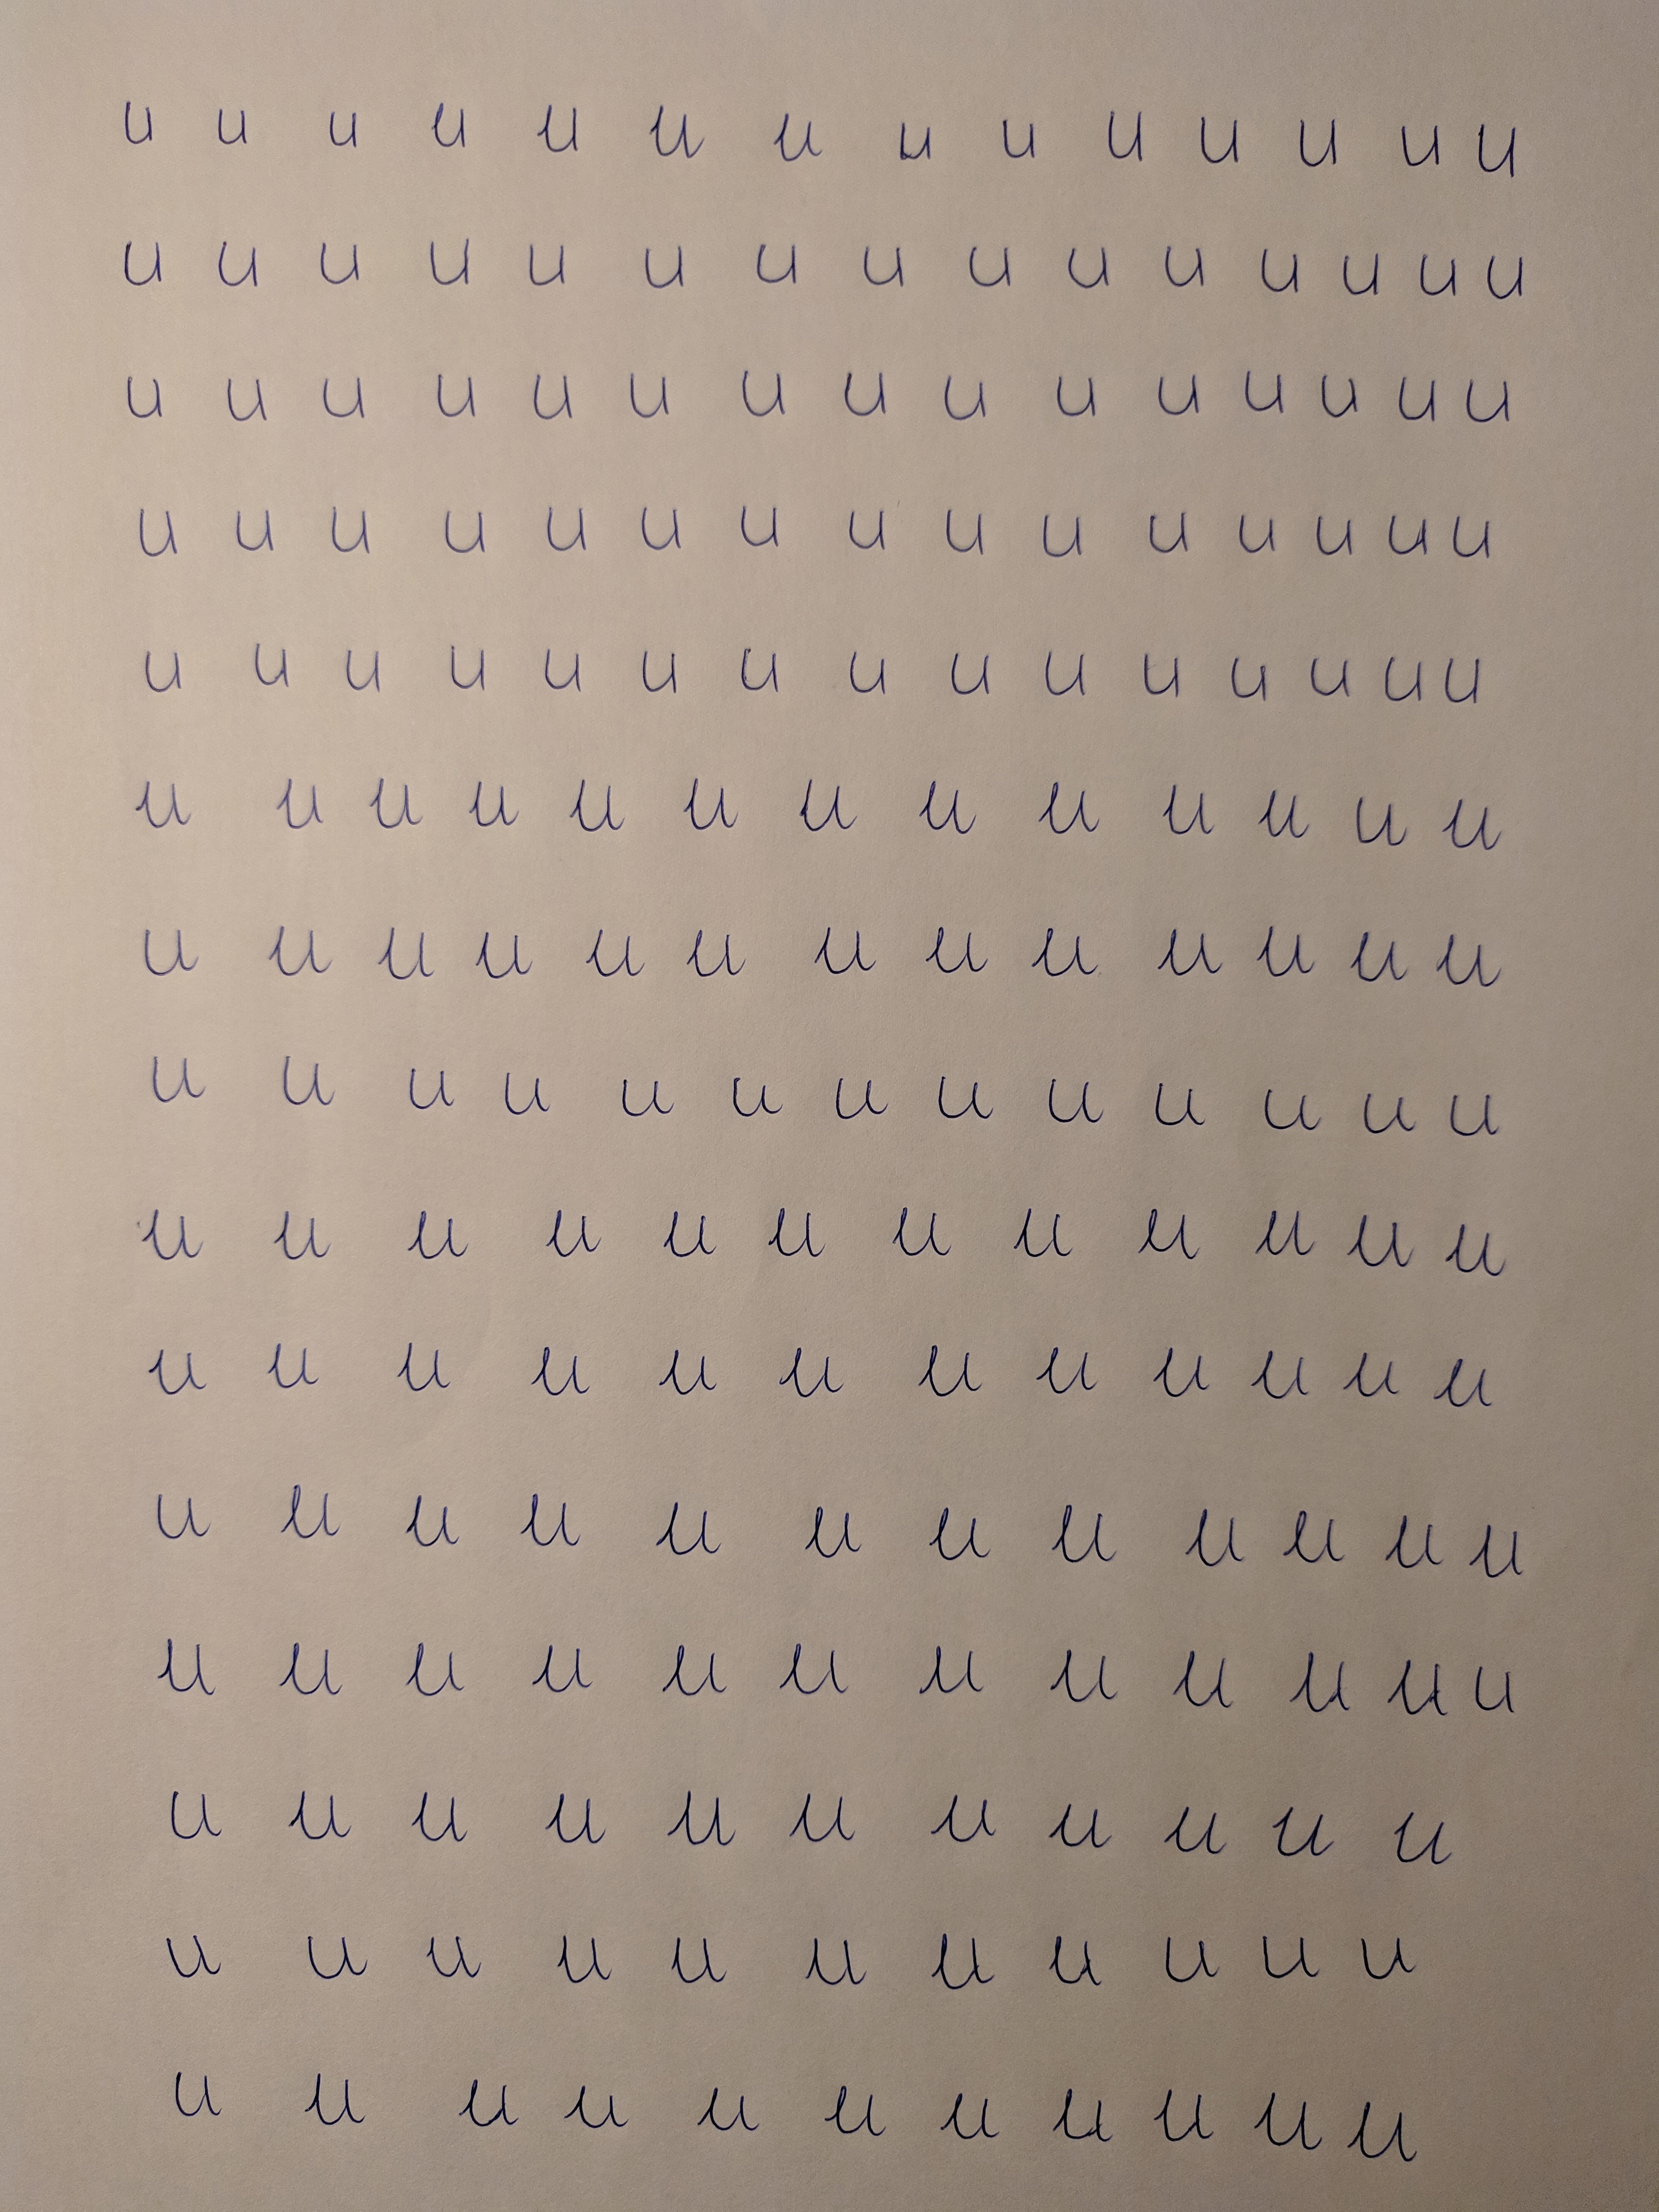 u u u u u u u u u u u u u u
u u u u u u u u u u u u u u u
u u u u u u u u u u u u u u u
u u u u u u u u u u u u u u u
u u u u u u u u u u u u u u u
u u u u u u u u u u u u u
u u u u u u u u u u u u u
u u u u u u u u u u u u u
u u u u u u u u u u u u
u u u u u u u u u u u u
u u u u u u u u u u u u
u u u u u u u u u u u u
u u u u u u u u u u u
u u u u u u u u u u u
u u u u u u u u u u u